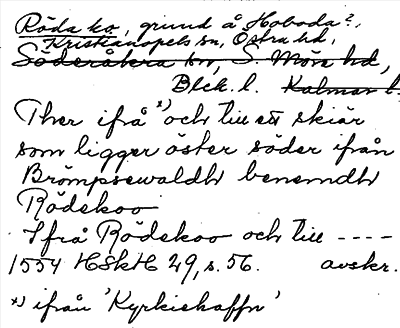 Röda ko, grund å Hoboda?,
Kristianopels sn, Östra hd,
Söderåkra sn, S. Möre hd,
Blek. l. Kalmar l.
Ther ifrå *) och till ett skiär
som ligger öster söder ifrån
Brömpsewaldh benemdh
Rödekoo
Ifrå Rödekoo och till ----
1554 HSkH 29, s. 56. avskr.
*) ifrån 'Kyrkiehaffn'